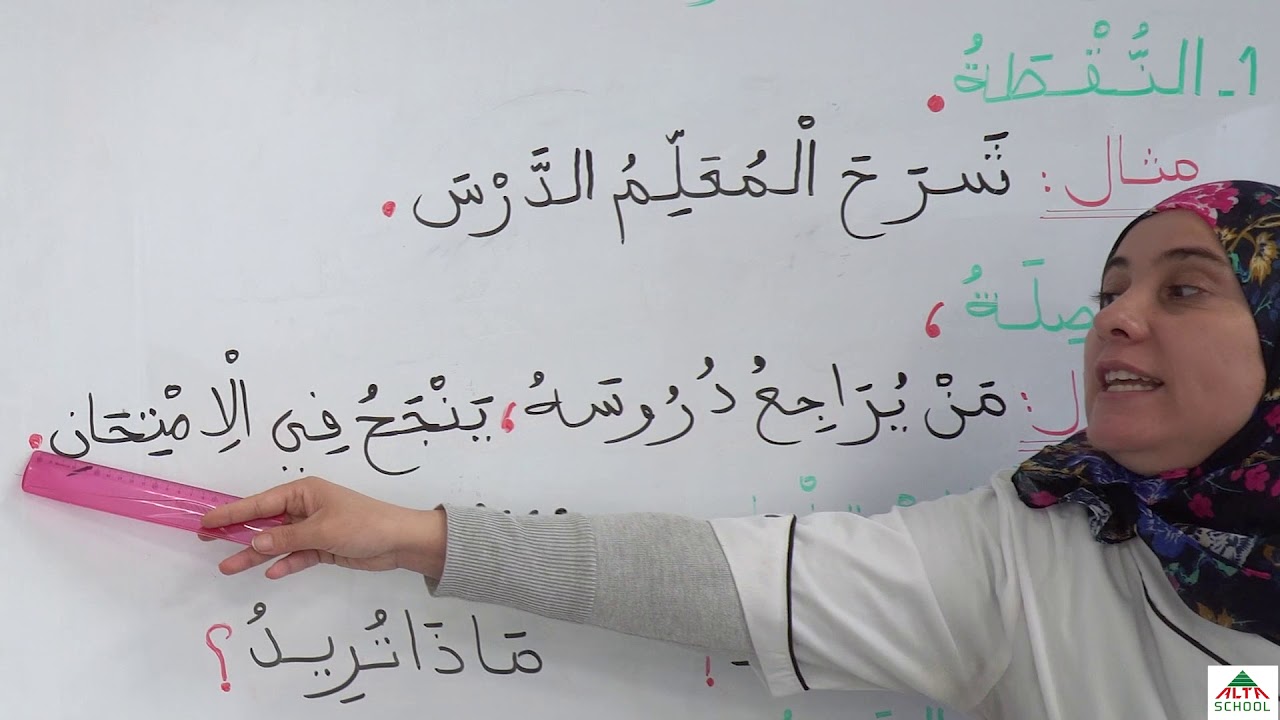 1ـ النُّقْطَةُ .
مثال : شَرَحَ الْمُعَلِّمُ الدَّرْسَ .
صِلَةُ ،
ال : مَنْ يُرَاجِعُ دُرُوسَهُ، يَنْجَحُ فِي الْاِمْتِحَانِ .
مَاذَا تُرِيدُ ؟
ALTA
SCHOOL